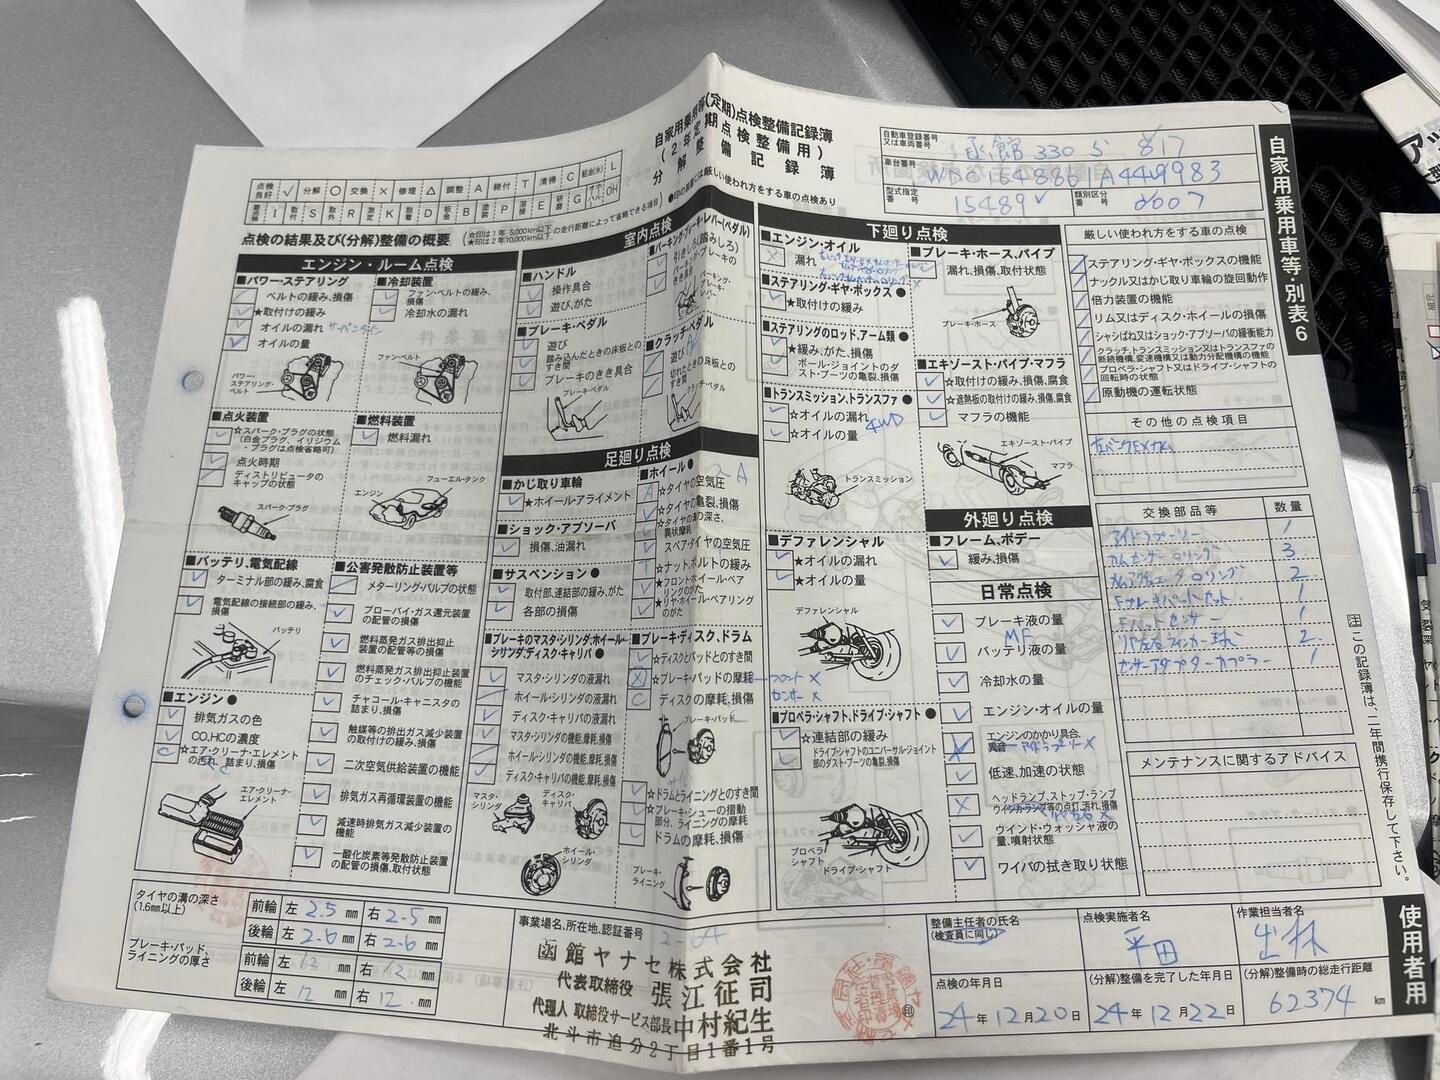 自家用乗用車等(定期)点検整備記録簿
(2年定期点検整備用)
分解整備記録簿
自動車登録番号
又は車両番号
函館 330 す 817
車台番号
型式指定
番号
15489
類別区分
番号
0007
自家用乗用車等・別表6
点検良好 ✓ 分解 ○ 交換 × 修理 △ 調整 A 締付 T 清掃 C 給油(水) L
省略 I 取付 S 取外 R 測定 K 脱着 D 板金 B 塗装 P 溶接 E 研磨 G オーバーホール OH
点検の結果及び(分解)整備の概要
☆印は1年 5,000km以下
★印は2年10,000km以下
の走行距離によって省略できる項目
●印の項目には厳しい使われ方をする車の点検あり
エンジン・ルーム点検
■パワー・ステアリング
ベルトの緩み、損傷
★取付けの緩み
オイルの漏れ
オイルの量
パワー・ステアリング・ベルト
■冷却装置
ファン・ベルトの緩み、損傷
冷却水の漏れ
ファン・ベルト
■点火装置
☆スパーク・プラグの状態
(白金プラグ、イリジウム・プラグは点検省略可)
点火時期
ディストリビュータのキャップの状態
スパーク・プラグ
■燃料装置
燃料漏れ
フューエル・タンク
エンジン
■バッテリ、電気配線
ターミナル部の緩み、腐食
電気配線の接続部の緩み、損傷
バッテリ
■エンジン●
排気ガスの色
CO、HCの濃度
☆エア・クリーナ・エレメントの汚れ、詰まり、損傷
エア・クリーナ・エレメント
■公害発散防止装置等
メターリング・バルブの状態
ブローバイ・ガス還元装置の配管の損傷
燃料蒸発ガス排出抑止装置の配管等の損傷
燃料蒸発ガス排出抑止装置のチェック・バルブの機能
チャコール・キャニスタの詰まり、損傷
触媒等の排出ガス減少装置の取付けの緩み、損傷
二次空気供給装置の機能
排気ガス再循環装置の機能
減速時排気ガス減少装置の機能
一酸化炭素等発散防止装置の配管の損傷、取付状態
室内点検
■ハンドル
操作具合
遊び、がた
■ブレーキ・ペダル
遊び
踏み込んだときの床板とのすき間
ブレーキのきき具合
ブレーキ・ペダル
■パーキング・ブレーキ・レバー(ペダル)
引きしろ(踏みしろ)
パーキング・ブレーキのきき具合
パーキング・ブレーキ・レバー
■クラッチ・ペダル
遊び
切れたときの床板とのすき間
クラッチ・ペダル
足廻り点検
■かじ取り車輪
★ホイール・アライメント
■ショック・アブソーバ
損傷、油漏れ
■サスペンション●
取付部、連結部の緩み、がた
各部の損傷
■ブレーキのマスタ・シリンダ、ホイール・シリンダ、ディスク・キャリパ●
マスタ・シリンダの液漏れ
ホイール・シリンダの液漏れ
ディスク・キャリパの液漏れ
マスタ・シリンダの機能、摩耗、損傷
ホイール・シリンダの機能、摩耗、損傷
ディスク・キャリパの機能、摩耗、損傷
マスタ・シリンダ
ディスク・キャリパ
ホイール・シリンダ
■ホイール●
☆タイヤの空気圧
☆タイヤの亀裂、損傷
☆タイヤの溝の深さ、異状摩耗
スペア・タイヤの空気圧
★ナット、ボルトの緩み
★フロント・ホイール・ベアリングのがた
★リヤ・ホイール・ベアリングのがた
■ブレーキ・ディスク、ドラム
☆ディスクとパッドとのすき間
☆ブレーキ・パッドの摩耗
フロント ×
センサー ×
ディスクの摩耗、損傷
ブレーキ・パッド
☆ドラムとライニングとのすき間
☆ブレーキ・シューの摺動部分、ライニングの摩耗
ドラムの摩耗、損傷
ブレーキ・ライニング
下廻り点検
■エンジン・オイル
漏れ
■ステアリング・ギヤ・ボックス●
★取付けの緩み
■ステアリングのロッド、アーム類●
★緩み、がた、損傷
ボール・ジョイントのダスト・ブーツの亀裂、損傷
■トランスミッション、トランスファ●
☆オイルの漏れ
☆オイルの量
4WD
トランスミッション
■デファレンシャル
★オイルの漏れ
★オイルの量
デファレンシャル
■プロペラ・シャフト、ドライブ・シャフト●
☆連結部の緩み
ドライブ・シャフトのユニバーサル・ジョイント部のダスト・ブーツの亀裂、損傷
プロペラ・シャフト
ドライブ・シャフト
■ブレーキ・ホース、パイプ
漏れ、損傷、取付状態
ブレーキ・ホース
■エキゾースト・パイプ・マフラ
☆取付けの緩み、損傷、腐食
☆遮熱板の取付けの緩み、損傷、腐食
マフラの機能
エキゾースト・パイプ
マフラ
外廻り点検
■フレーム、ボデー
緩み、損傷
日常点検
ブレーキ液の量
MF
バッテリ液の量
冷却水の量
エンジン・オイルの量
エンジンのかかり具合、異音
アイドラプーリー ×
低速、加速の状態
ヘッドランプ、ストップ・ランプ
ウインカ・ランプ等の点灯、汚れ、損傷
ウインド・ウォッシャ液の量、噴射状態
ワイパの拭き取り状態
厳しい使われ方をする車の点検
ステアリング・ギヤ・ボックスの機能
ナックル又はかじ取り車輪の旋回動作
倍力装置の機能
リム又はディスク・ホイールの損傷
シャシばね又はショック・アブソーバの緩衝能力
クラッチ、トランスミッション又はトランスファの断続機構、変速機構又は動力分配機構の機能
プロペラ・シャフト又はドライブ・シャフトの回転時の状態
原動機の運転状態
その他の点検項目
交換部品等 数量
アイドラプーリー 1
カムセンサーOリング 3
2
Fブレーキパットセット 1
Fパットセンサー 1
2
センサーアダプターカプラー 1
メンテナンスに関するアドバイス
注 この記録簿は、二年間携行保存して下さい。
使用者用
タイヤの溝の深さ
(1.6mm以上)
前輪 左 2.5 mm 右 2.5 mm
後輪 左 2.6 mm 右 2.6 mm
ブレーキ・パッド、ライニングの厚さ
前輪 左 12 mm 右 12 mm
後輪 左 12 mm 右 12 mm
事業場名、所在地、認証番号
2-64
函館ヤナセ株式会社
代表取締役 張江征司
代理人 取締役サービス部長 中村紀生
北斗市追分2丁目1番1号
整備主任者の氏名
(検査員に同じ)
点検実施者名
平田
作業担当者名
出林
点検の年月日
24年12月20日
(分解)整備を完了した年月日
24年12月22日
(分解)整備時の総走行距離
62374 km